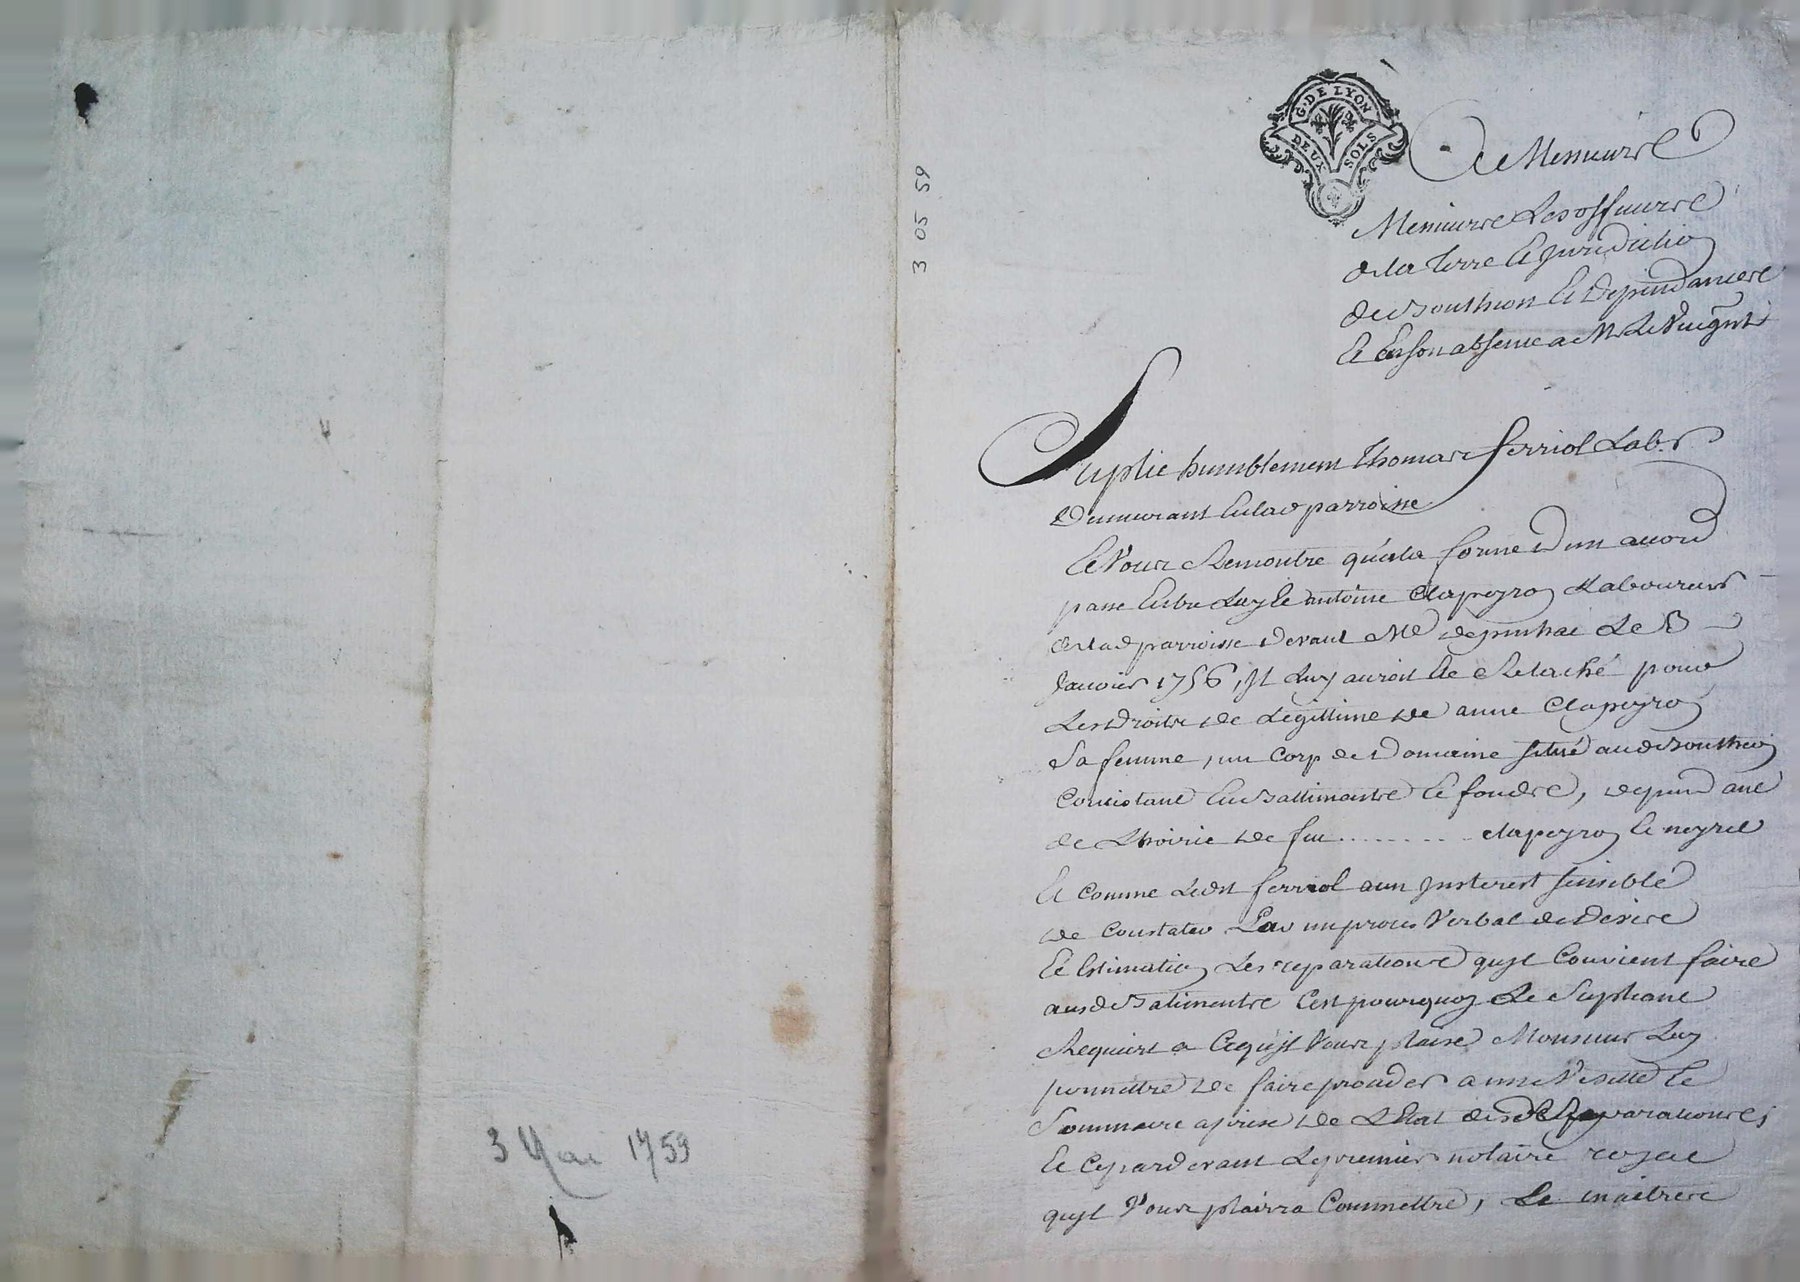 3 Mai 1759
3 05 59
G. DE LYON
DEUX SOLS
A Messieurs
Messieurs Les officiers
de la Terre Et Jurediction
de Boutheon Et Dependances
Et En son absence a Mr Le Vicegnt
Suplie humblement Thomas ferriol Labr
Demeurant En lad parroisse
Et Vous Remontre qu'en la forme d'un acord
passé Entre Luy Et antoine Clapeyron Laboureur
de lad parroisse devant Me depinhac Le 8
Janvier 1756, Il Luy auroit Eté Relaché pour
Les Droits de Legittime de anne Clapeyron
Sa femme, un Corp de Domaine situé aud Boutheon
Consistant En Battiments Et fonds, dependant
de L'hoirie de feu ......... clapeyron Et neyret
Et Comme Ledit ferriol a un Interest sensible
de Constater Par un proces Verbal de Devise
Et Estimation Les reparations qu'il Convient faire
ausd Batiments C'est pourquoy Le Supliant
Requiert a Ce qu'il Vous plaise Monsieur Luy
permettre de faire proceder a une Visitte Et
Sommaire aprise de L'Etat desd Reparations,
Et Ce pardevant Le premier notaire royal
qu'il Vous plairra Commettre, Les maitres